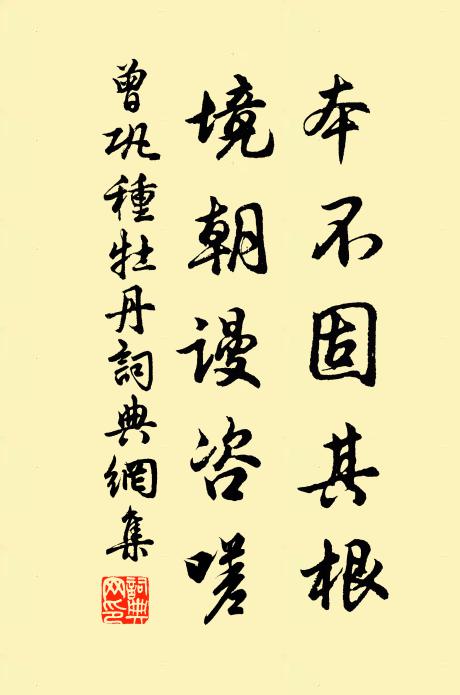 本不固其根
境朝谩咨嗟
曾巩種牡丹詞典網集
詞典網印